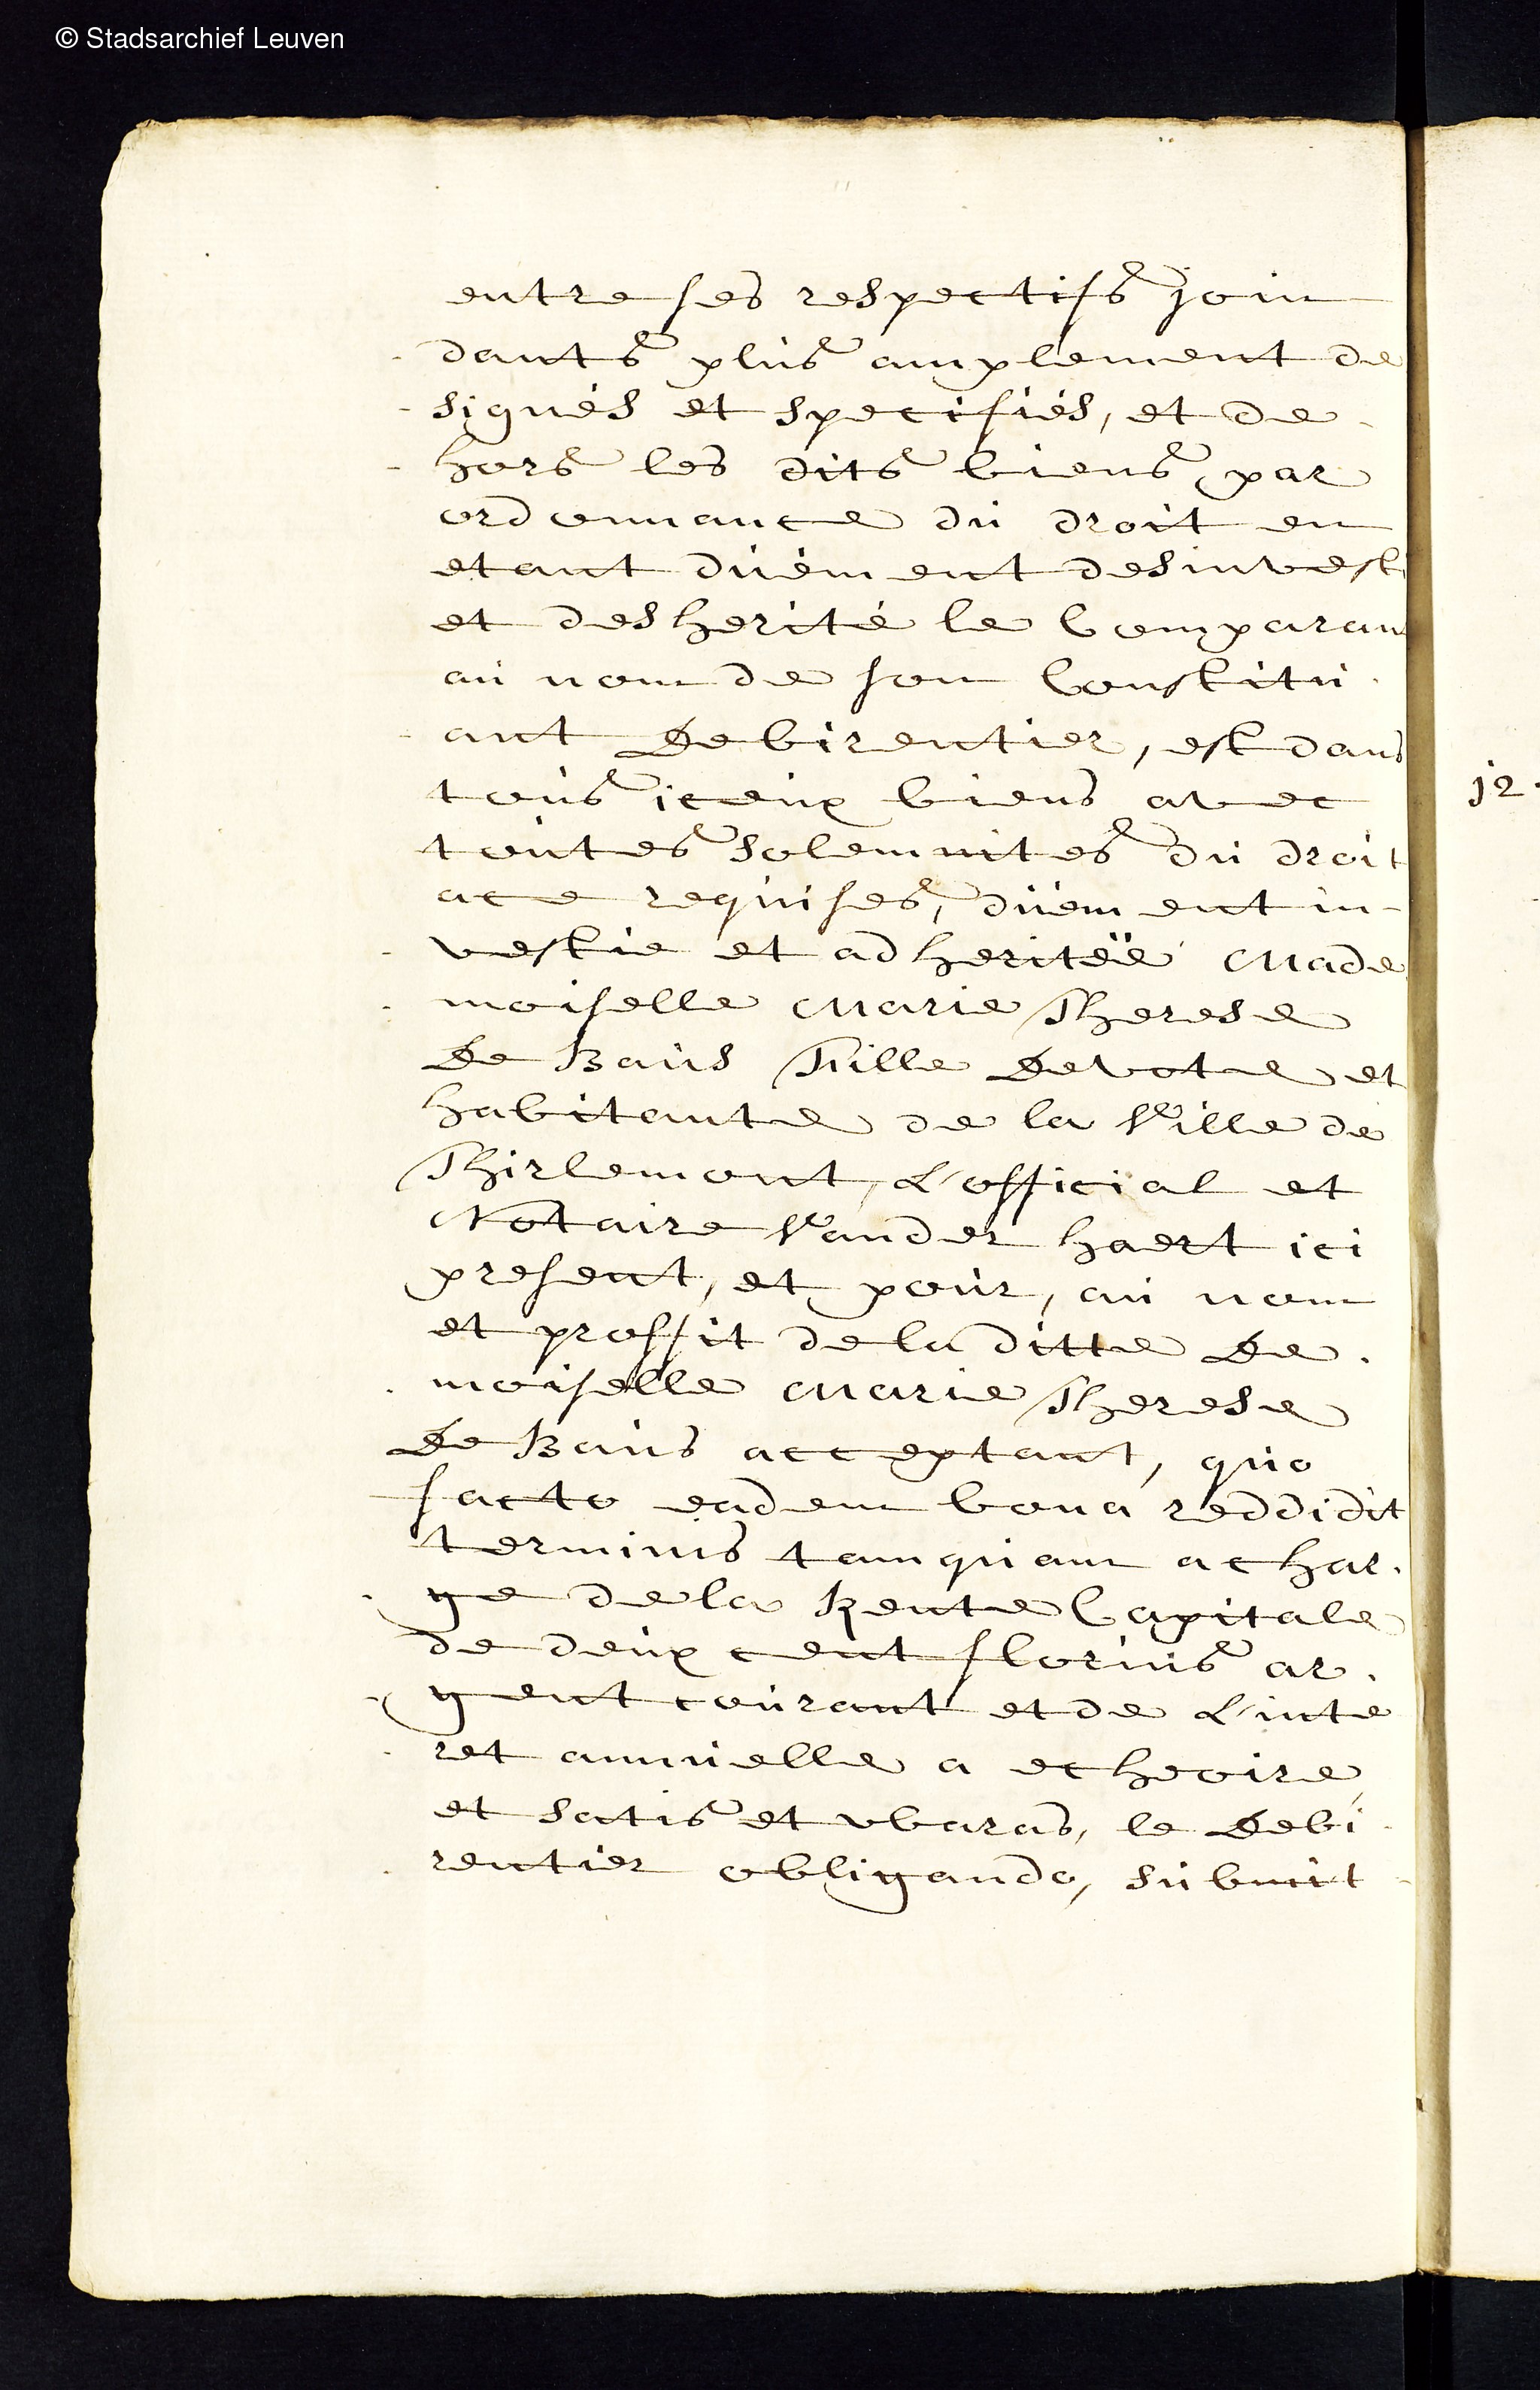 © Stadsarchief Leuven
entre ses respectifs join
dants plus amplement de
signés et specifiés, et de
hors les dits biens par
ordonnance du droit en
etant düement desinvesti
et desherité le Comparan
au nom de son Constitu
ant Debirentier, est dans
tous iceux biens avec
toutes solemnites du droit
ace requises, düement in-
vestie et adheritëe Made
moiselle Marie Therese
De Baus Fille Devote et
habitante de la Ville de
Thirlemont, L'official et
Notaire Vander haert ici
present, et pour, au nom
et proffit de la ditte De
moiselle Marie Therese
De Baus acceptant, quo
facto eadem bona reddidit
terminis tamquam achar
ge de la Rente Capitale
de deux cent florins ar
gent courant et de L'inte
ret annuelle a echeoire,
et satis et wbaras, le Debi
rentier obligando, submit
j2.